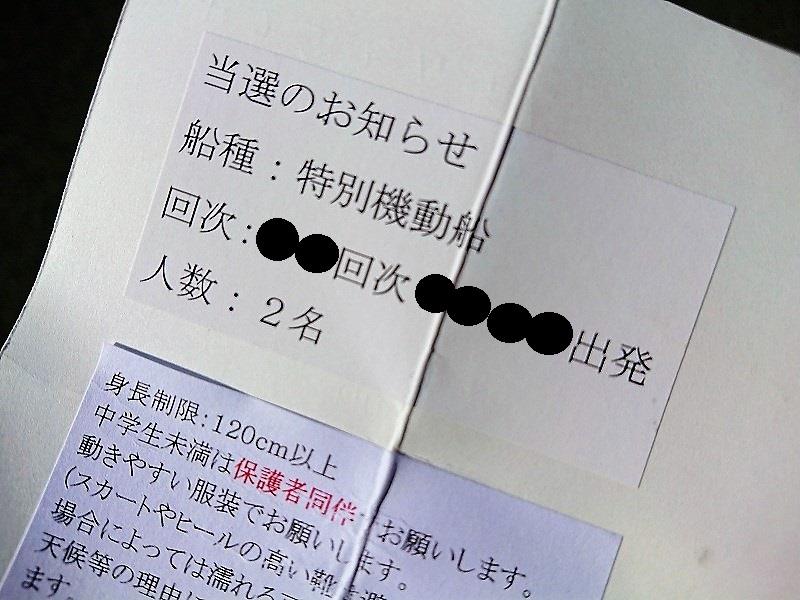 当選のお知らせ
船種：特別機動船
回次：●●回次●●●●出発
人数：２名
身長制限：120cm以上
中学生未満は保護者同伴でお願いします。
動きやすい服装でお願いします。
(スカートやヒールの高い靴
場合によっては濡れる
天候等の理由に
ます。